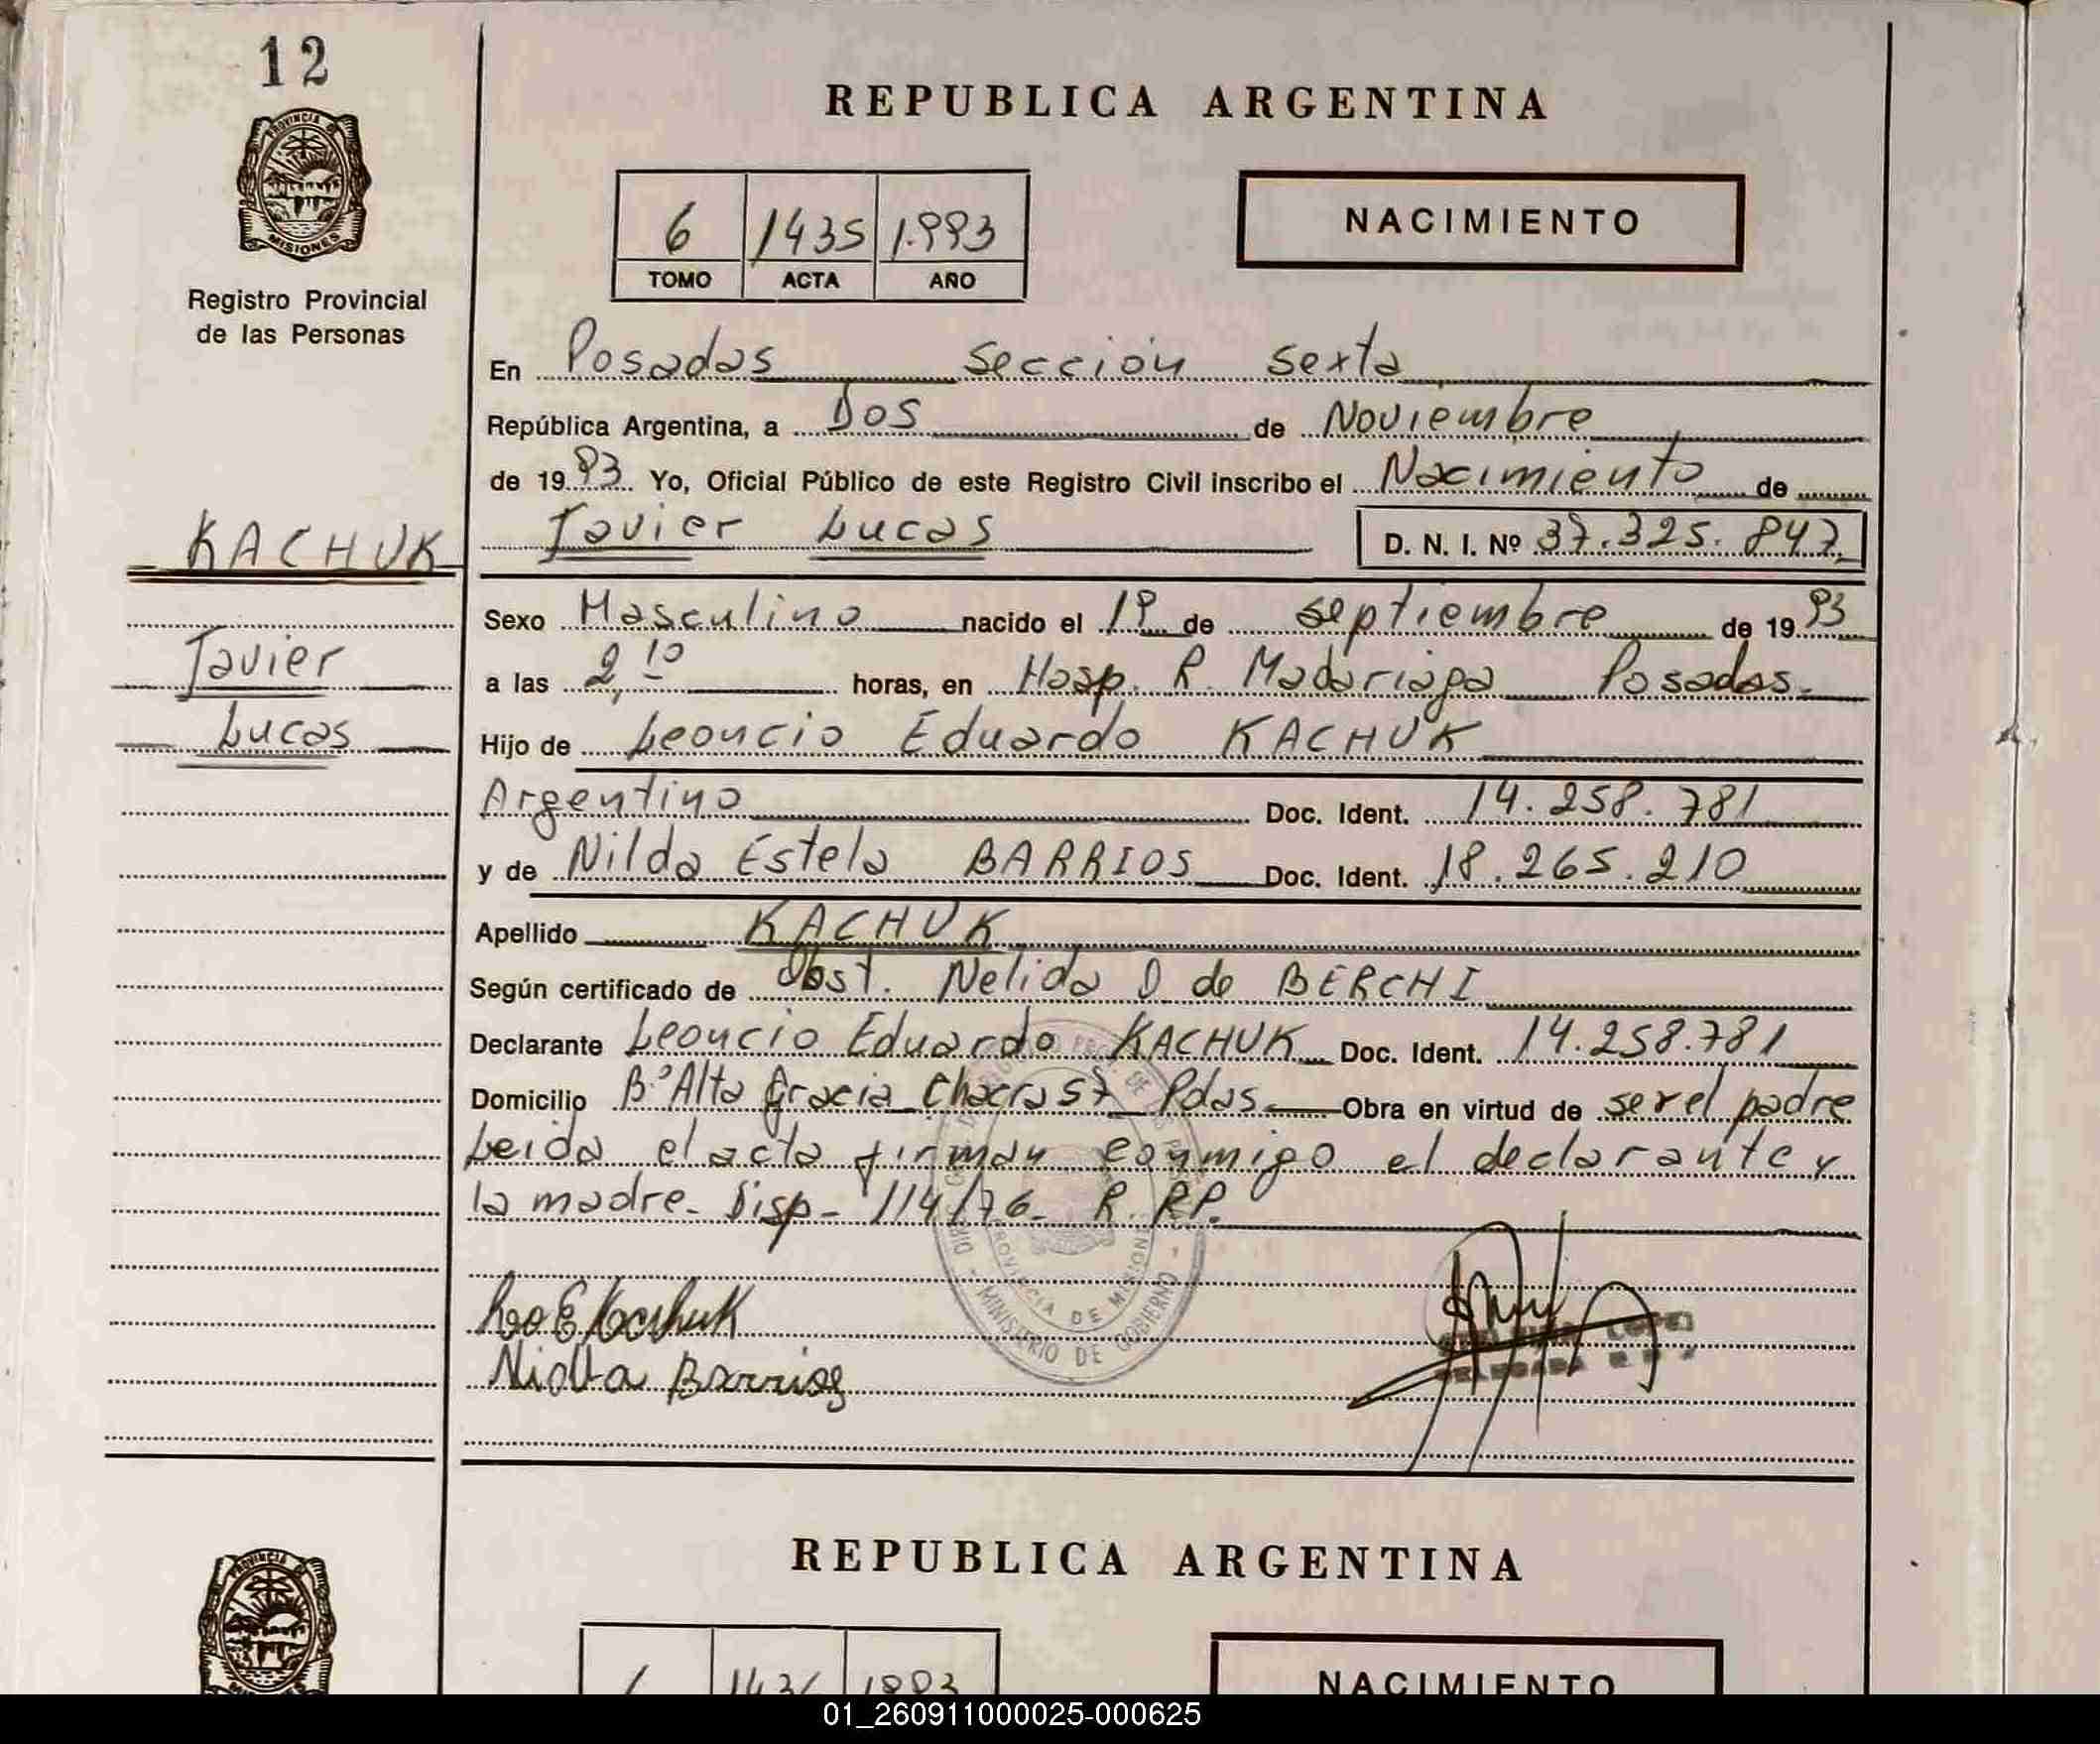 12
REPUBLICA ARGENTINA
PROVINCIA DE
MISIONES
6 1435 1.993
TOMO ACTA AÑO
NACIMIENTO
Registro Provincial
de las Personas
En Posadas Sección Sexta
República Argentina, a Dos de Noviembre
de 1993 Yo, Oficial Público de este Registro Civil inscribo el Nacimiento de
KACHUK
Javier Lucas D. N. I. Nº 37.325.847
Sexo Masculino nacido el 19 de septiembre de 1993
Javier
a las 2,10 horas, en Hosp. R. Madariaga Posadas.
Lucas
Hijo de Leoncio Eduardo KACHUK
Argentino Doc. Ident. 14.258.781
y de Nilda Estela BARRIOS Doc. Ident. 18.265.210
Apellido KACHUK
Según certificado de Obst. Nelida D de BERCHI
Declarante Leoncio Eduardo KACHUK Doc. Ident. 14.258.781
Domicilio Bº Alta Gracia Chacra 57 Pdas. Obra en virtud de ser el padre
Leida el acta firman conmigo el declarante y
la madre- Disp- 114/76- R. RP.
PROVINCIA DE MISIONES
MINISTERIO DE GOBIERNO
Leo E Kachuk
Nilda Barrios
LOPEZ
DELEGADA
REPUBLICA ARGENTINA
PROVINCIA
1993
NACIMIENTO
01_260911000025-000625